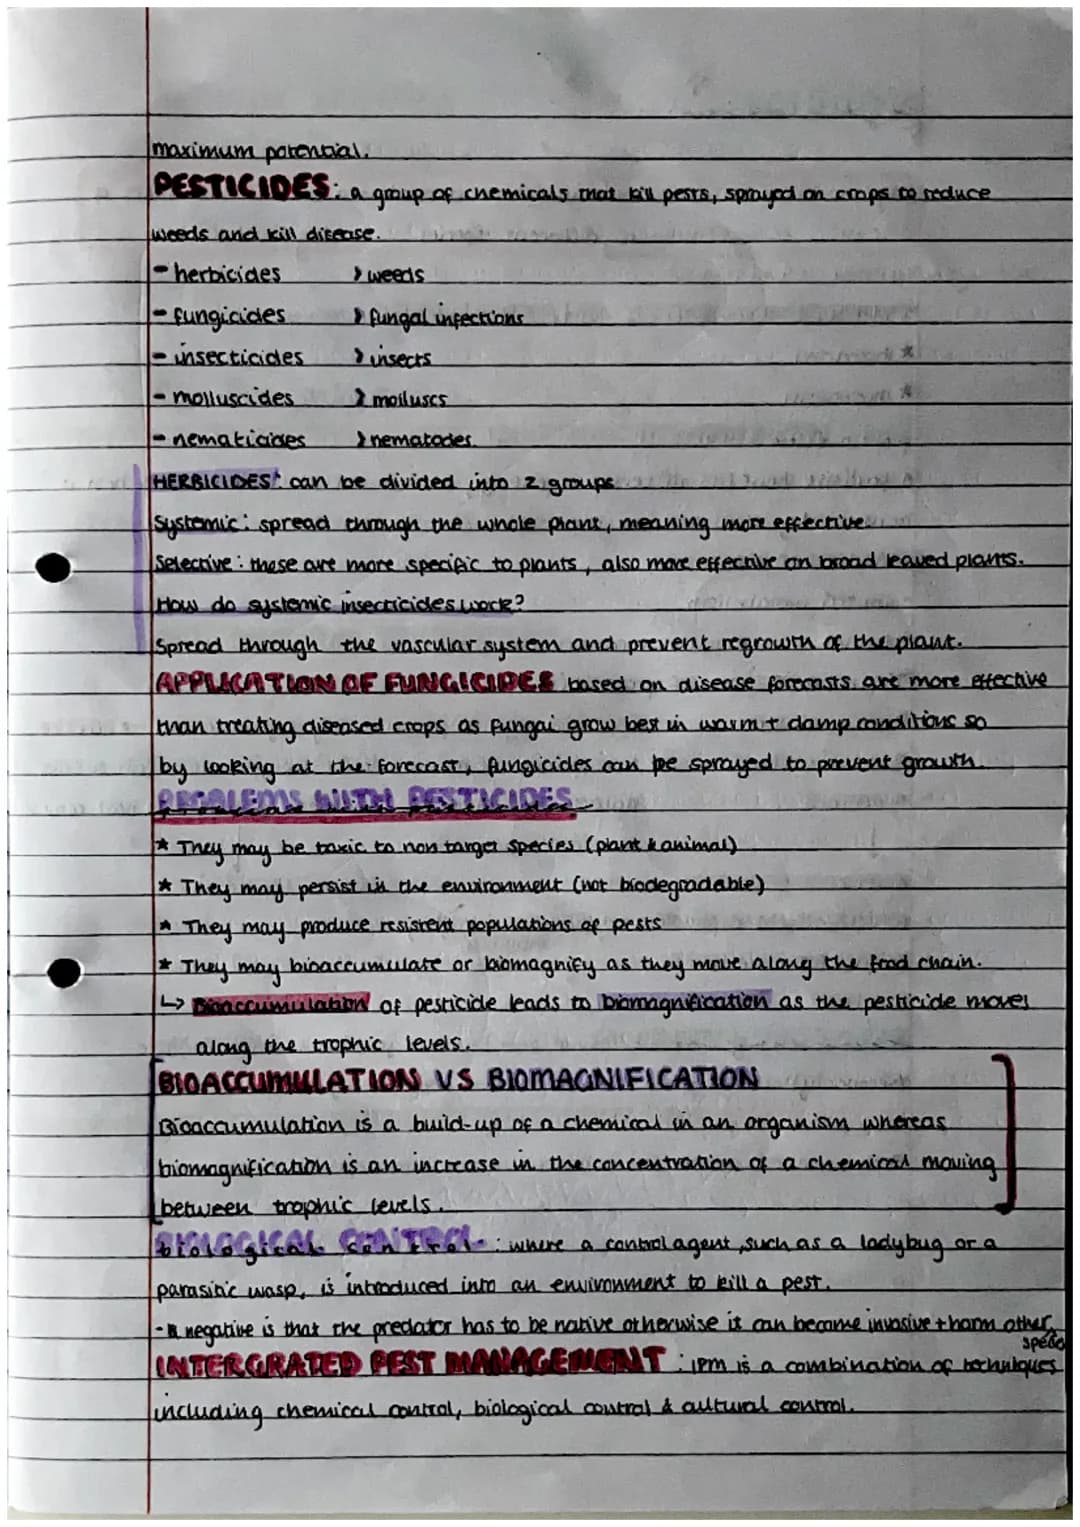 maximum potential.
PESTICIDES: a group of chemicals that kill pests, sprayed on crops to reduce
weeds and kill disease.
- herbicides > weeds
- fungicides > fungal infections
- insecticides > insects
- molluscides > molluscs
- nematicides > nematodes.
HERBICIDES: can be divided into 2 groups
Systemic: spread through the whole plant, meaning more effective.
Selective: these are more specific to plants, also more effective on broad leaved plants.
How do systemic insecticides work?
Spread through the vascular system and prevent regrowth of the plant.
APPLICATION OF FUNGICIDES based on disease forecasts are more effective
than treating diseased crops as fungai grow best in warm + damp conditions so
by looking at the forecast, fungicides can be sprayed to prevent growth.
PROBLEMS WITH PESTICIDES
* They may be toxic to non target species (plant & animal)
* They may persist in the environment (not biodegradable)
* They may produce resistent populations of pests
* They may bioaccumulate or biomagnify as they move along the food chain.
↳ Bioaccumulation of pesticide leads to biomagnification as the pesticide moves
along the trophic levels.
BIOACCUMULATION VS BIOMAGNIFICATION
Bioaccumulation is a build-up of a chemical in an organism whereas
biomagnification is an increase in the concentration of a chemical moving
between trophic levels.
BIOLOGICAL CONTROL: where a control agent, such as a ladybug or a
parasitic wasp, is introduced into an environment to kill a pest.
- a negative is that the predator has to be native otherwise it can become invasive + harm other
species
INTERGRATED PEST MANAGEMENT: IPM is a combination of techniques
including chemical control, biological control & cultural control.